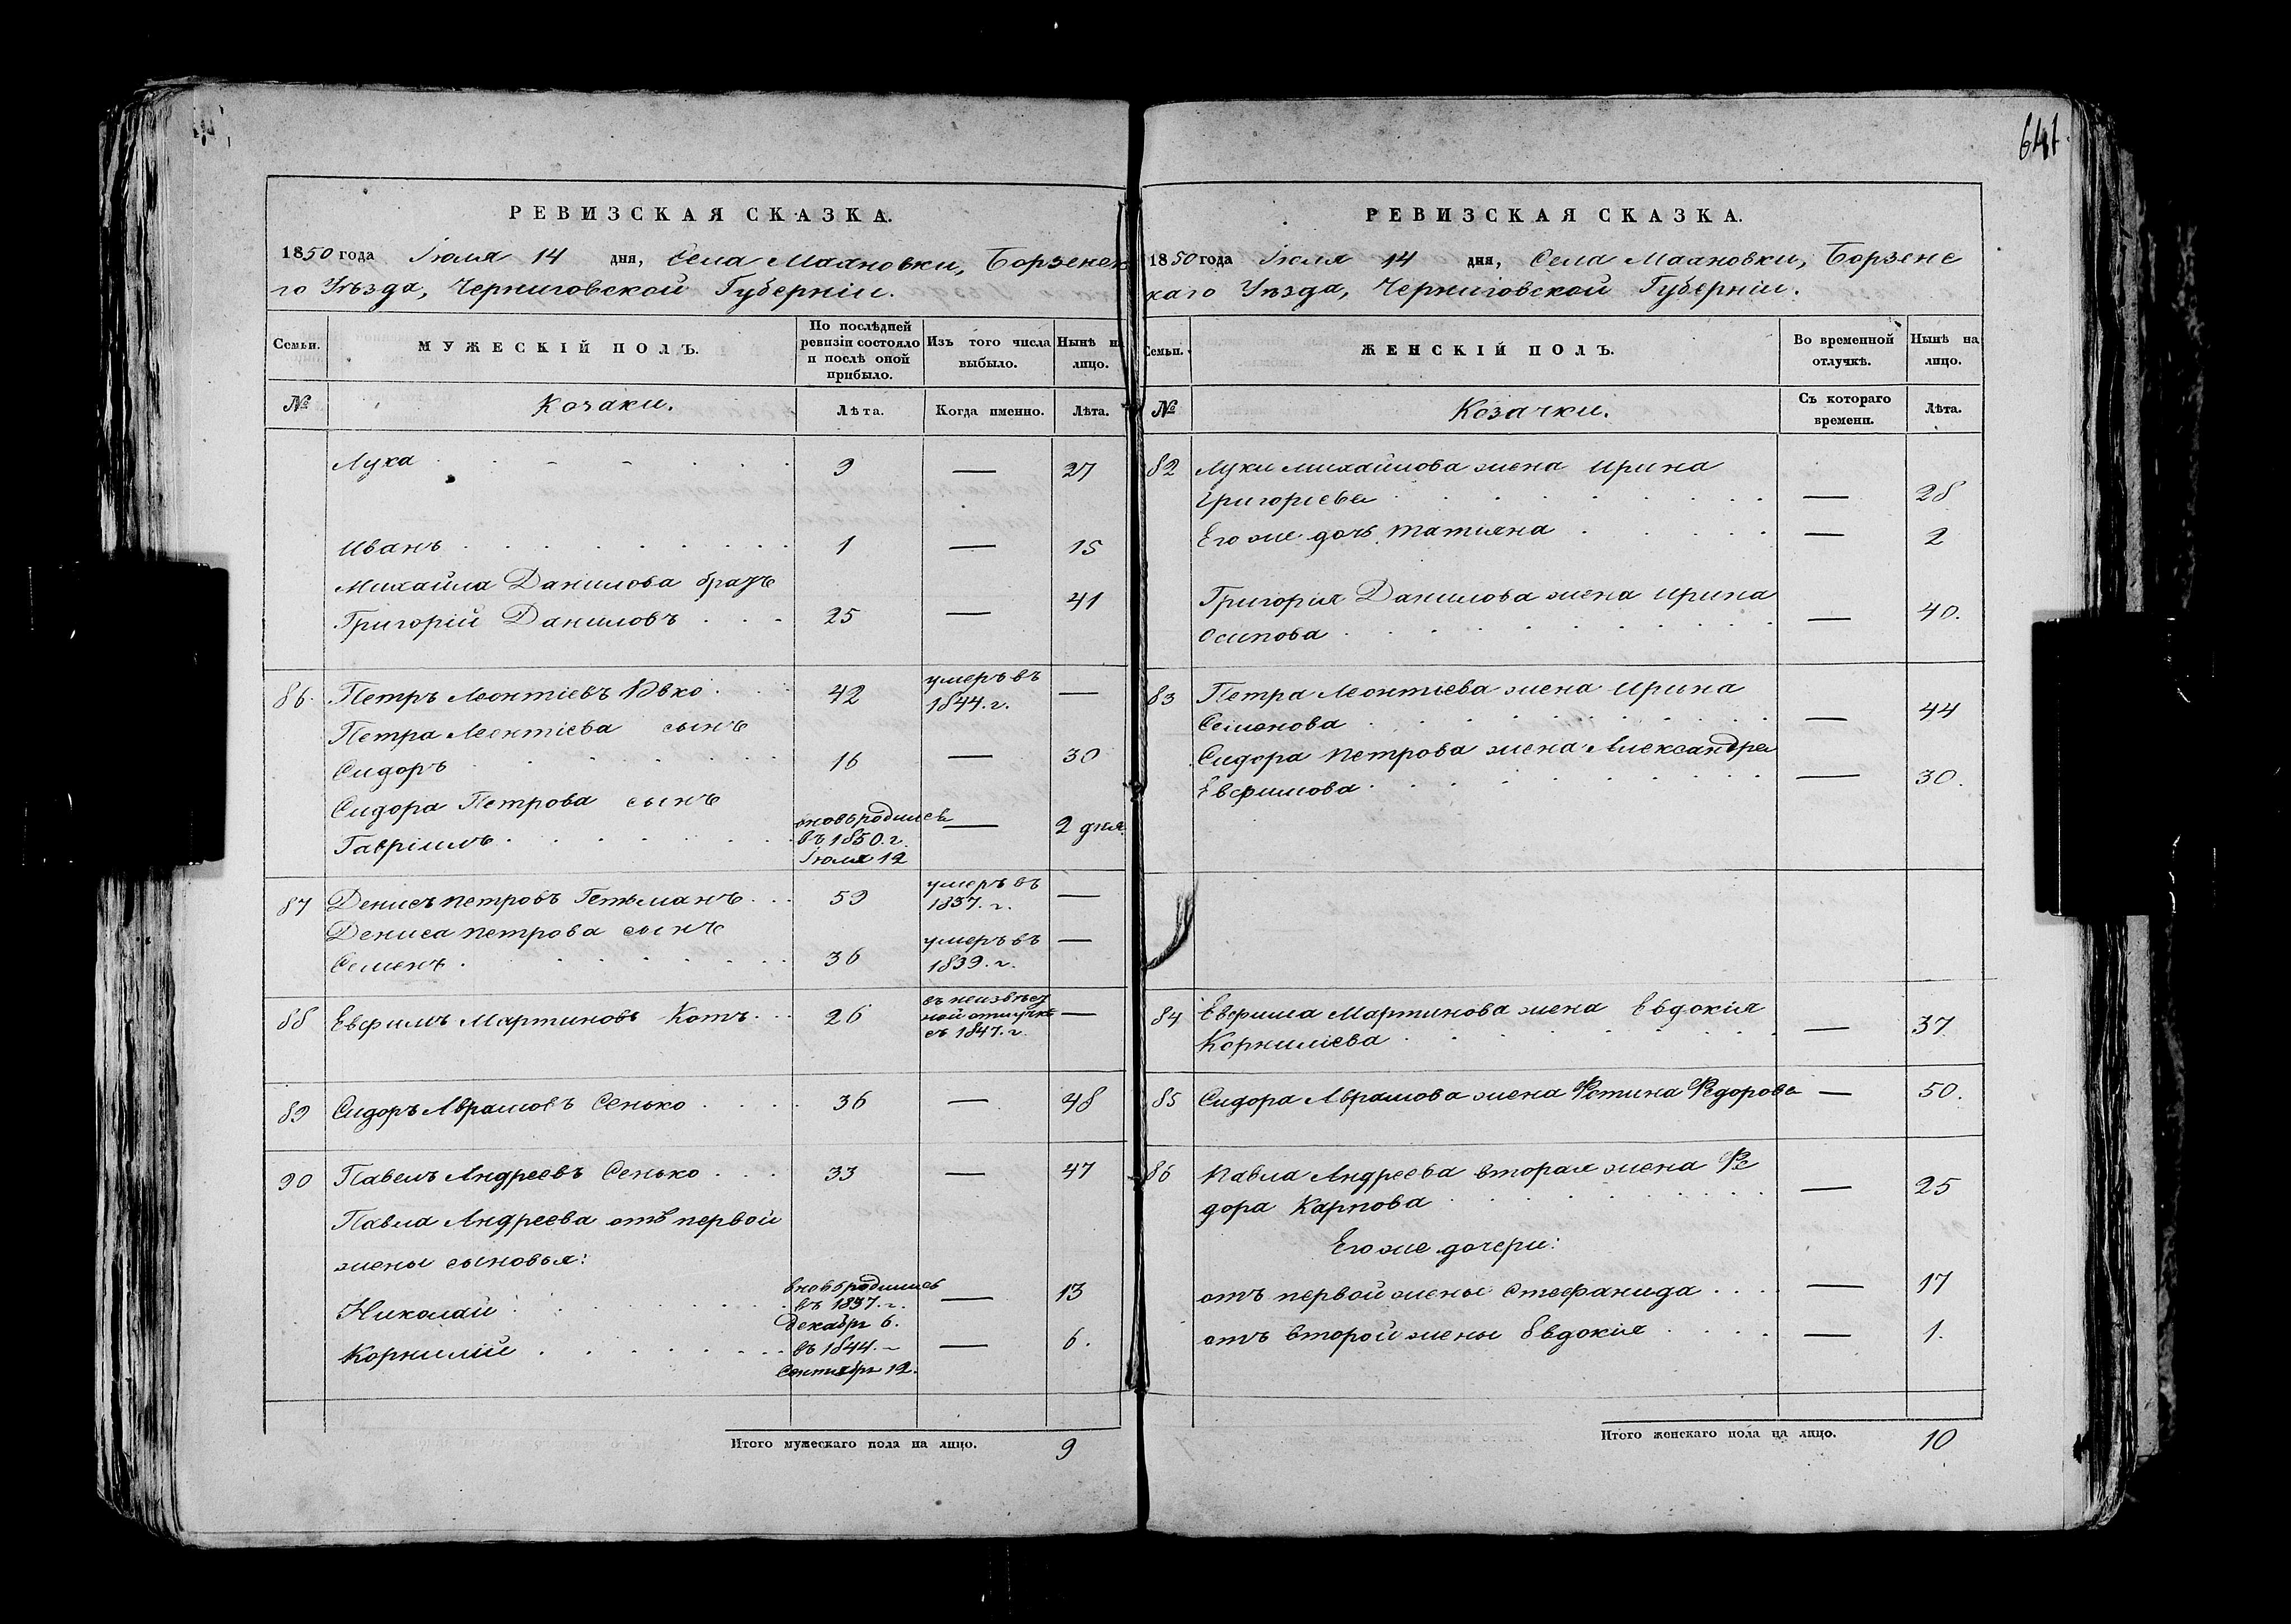 641
РЕВИЗСКАЯ СКАЗКА.
1850 года Іюля 14 дня, Села Малновки, Борзенск
го Уѣзда, Черниговской Губерніи.
Семьи. МУЖЕСКІЙ ПОЛЪ. По послѣдней ревизіи состояло и послѣ оной прибыло. Изъ того числа выбыло. Нынѣ на лицо.
№ Козаки. Лѣта. Когда именно. Лѣта.
Лука 9 — 27
Иванъ 1 — 15
Михайла Данилова братъ
Григорій Даниловъ 25 — 41
86. Петръ Леонтіевъ Вовко 42 умеръ въ 1844. г. —
Петра Леонтіева сынъ
Сидоръ 16 — 30
Сидора Петрова сынъ
Гавріилъ вновь родился въ 1850. г. Іюля 12 — 2 дня.
87 Денисъ Петровъ Гетьманъ 59 умеръ въ 1837. г. —
Дениса Петрова сынъ
Семенъ 36 умеръ въ 1839. г. —
88 Евфимъ Мартиновъ Котъ 26 въ неизвѣст
ной отлучкѣ
съ 1847. г. —
89 Сидоръ Аврамовъ Сенько 36 — 48
90 Павелъ Андреевъ Сенько 33 — 47
Павла Андреева отъ первой
жены сыновья:
Николай вновь родились въ 1837. г. Декабря 6. — 13
Корнилій въ 1844. – Сентября 12. — 6.
Итого мужескаго пола на лицо. 9
РЕВИЗСКАЯ СКАЗКА.
1850 года Іюля 14 дня, Села Малновки, Борзенс
каго Уѣзда, Черниговской Губерніи.
Семьи. ЖЕНСКІЙ ПОЛЪ. Во временной отлучкѣ. Нынѣ на лицо.
№ Козачки. Съ котораго времени. Лѣта.
82 Луки Михайлова жена Ирина
Григоріева — 28
Его же дочь Татіяна — 2
Григорія Данилова жена Ирина
Осипова — 40.
83 Петра Леонтіева жена Ирина
Семенова — 44
Сидора Петрова жена Александра
Евфимова — 30.
84 Евфима Мартинова жена Евдокія
Корниліева — 37
85 Сидора Аврамова жена Фетина Федорова — 50.
86 Павла Андреева вторая жена Фе
дора Карпова — 25
Его же дочери:
отъ первой жены Стефанида — 17
отъ второй жены Евдокія — 1.
Итого женскаго пола на лицо. 10